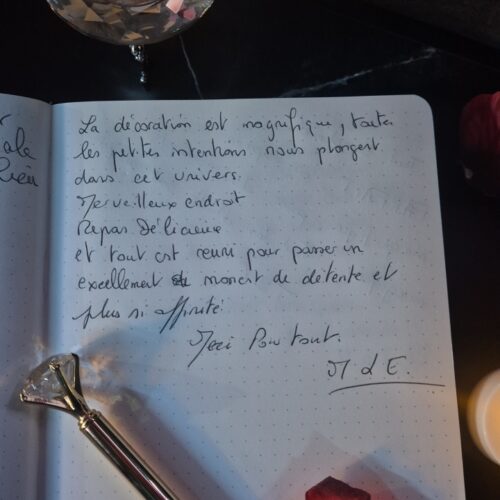 ale
La décoration est magnifique, toutes
les petites intentions nous plongent
dans cet univers.
Merveilleux endroit
Repas Délicieux
et tout est reuni pour passer un
excellement moment de détente et
plus si affinité
Merci Pour tout.
M d E.